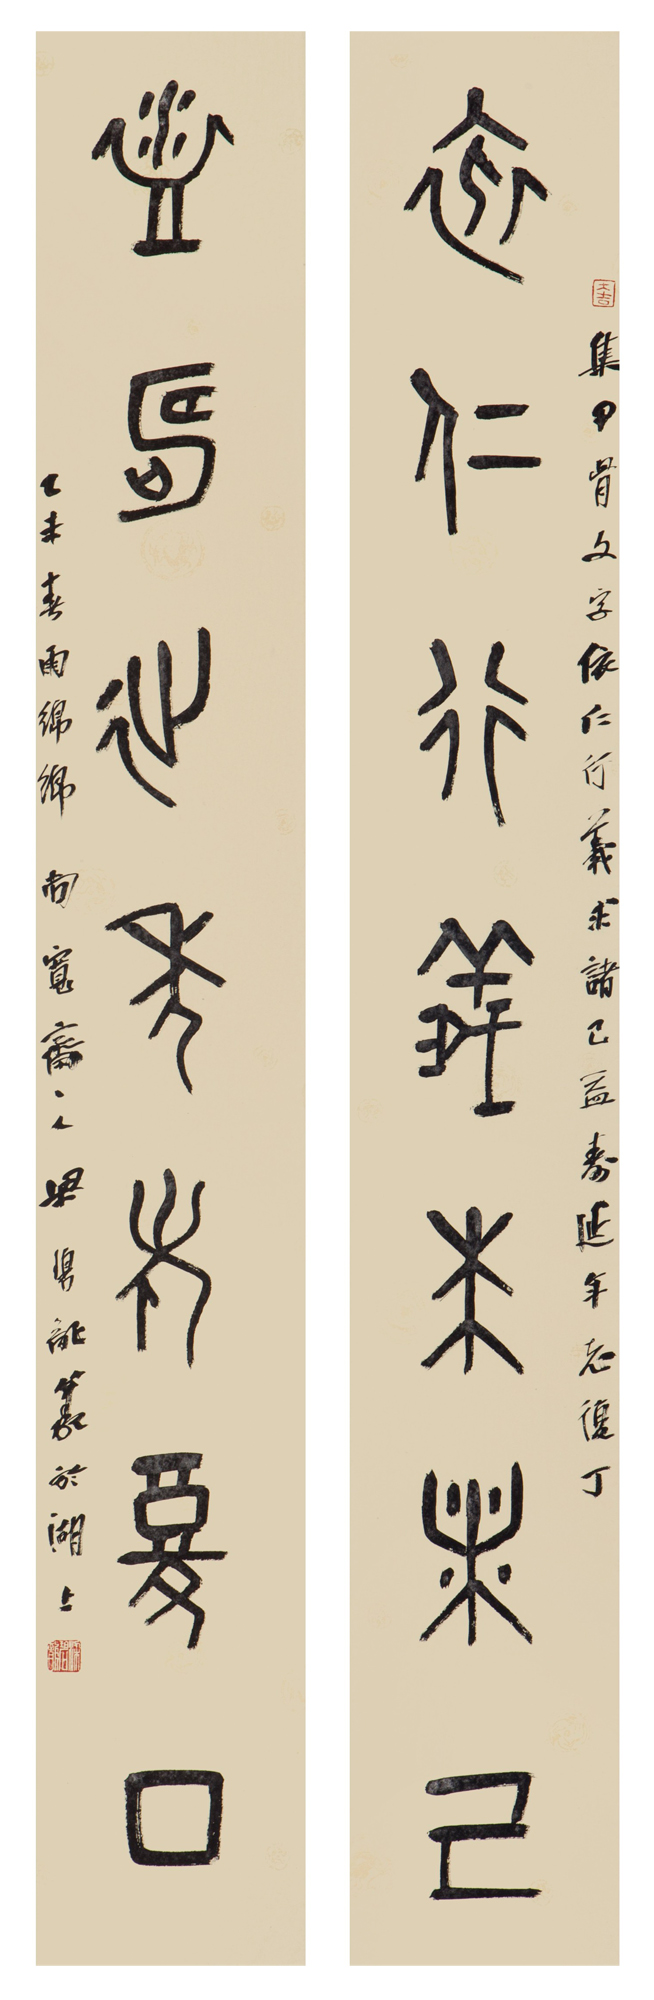 依仁行義求諸己
集甲骨文字依仁行義求諸己益壽延年老復丁
益壽延年老復丁
乙未春雨綿綿 尚寬齋人 梁 於湖上